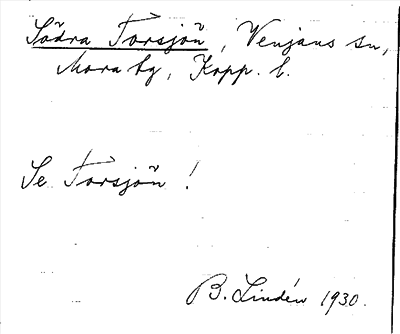 Södra Torsjön, Venjans sn,
Mora tg, Kopp. l.
Se Torsjön!
B. Lindén 1930.